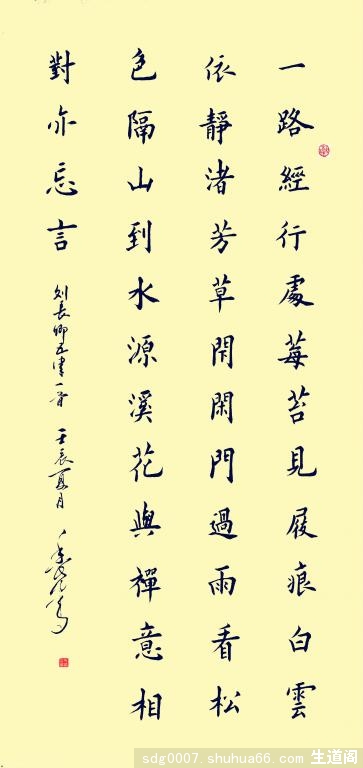 一路經行處莓苔見屐痕白雲
依靜渚芳草閉閑門過雨看松
色隔山到水源溪花與禪意相
對亦忘言
刘長卿五律一首 壬辰夏月
sdg0007.shuhua66.com 生道阁